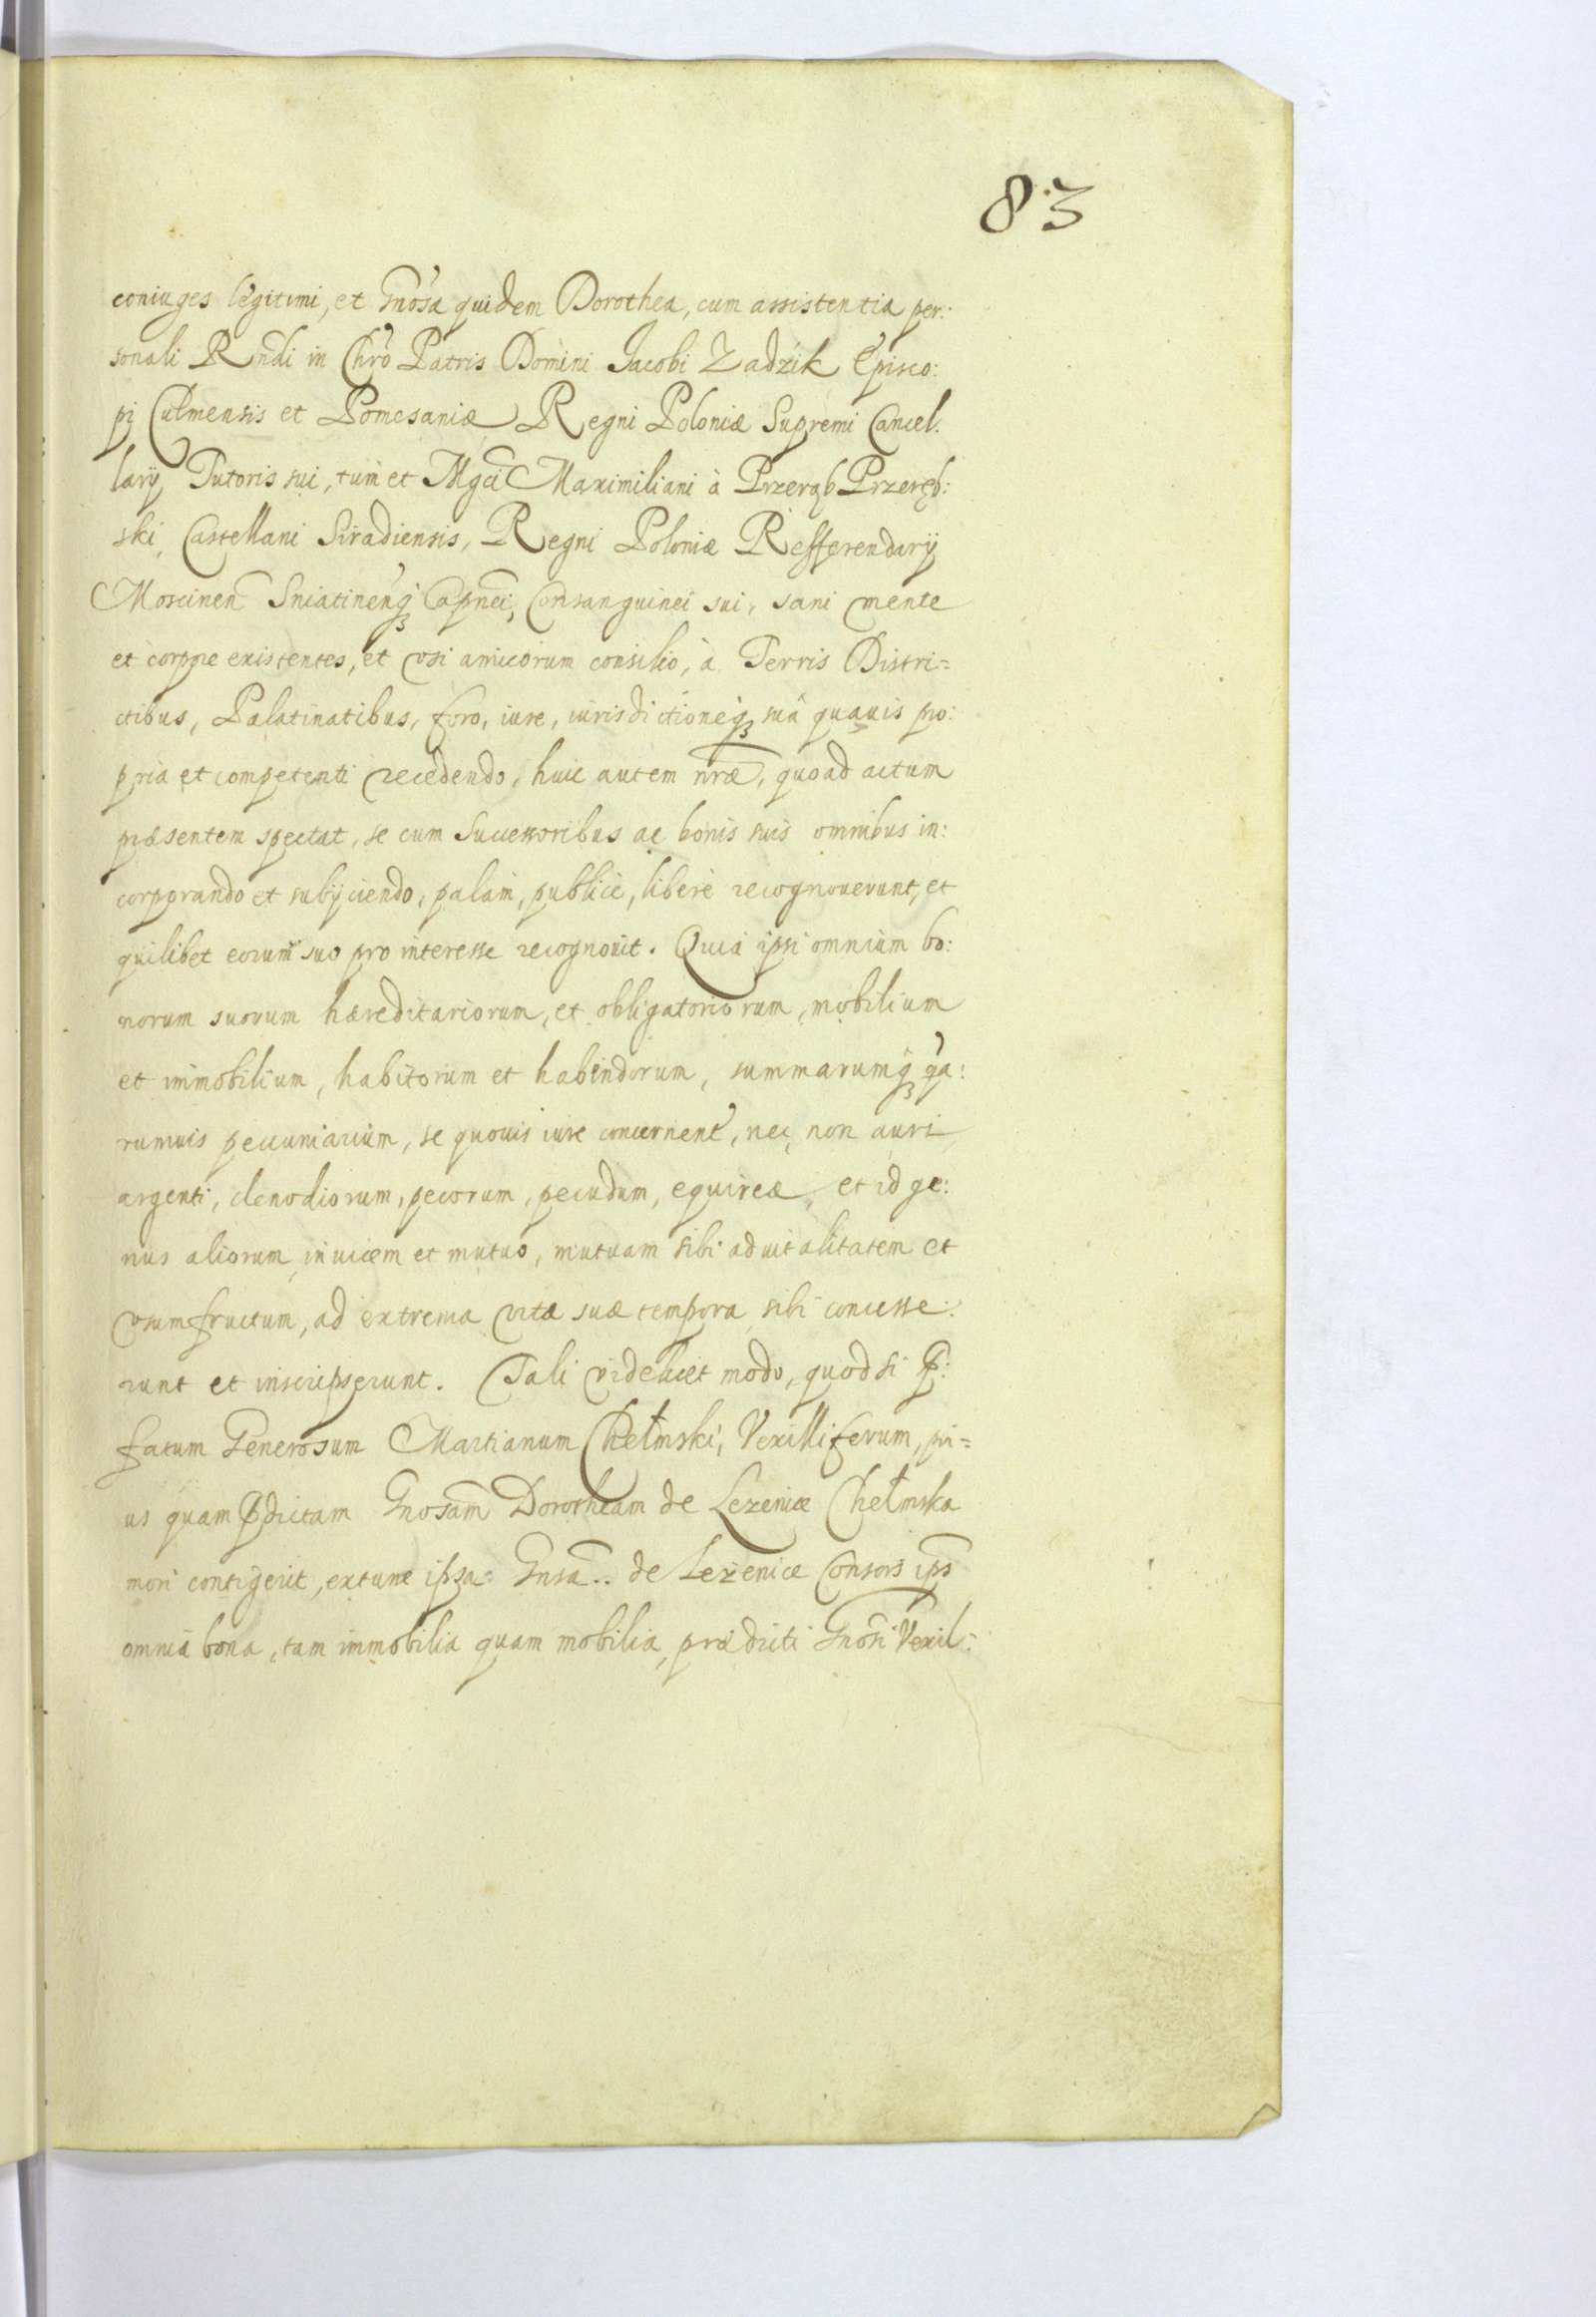 83
coniuges legitimi, et Gnosa quidem Dorothea, cum assistentia per:
sonali Rndi in Chro Patris Domini Jacobi Zadzik Episco:
pi Culmensis et Pomesaniæ Regni Poloniæ Supremi Cancel:
larÿ Tutoris sui, tum et Mgci Maximiliani à Przerąb Przeręb:
ski, Castellani Siradiensis, Regni Poloniæ Refferendarÿ
Moscinen Sniatinenq Capnei, Consanguinei sui, sani mente
et corpore existentes, et vsi amicorum consilio, à Terris Distri=
ctibus, Palatinatibus, foro, iure, iurisdictioneq suâ quauis pro:
pria et competenti recedendo, huic autem nræ, quoad actum
præsentem spectat, se cum Successoribus ac bonis suis omnibus in:
corporando et subÿciendo, palam, publicè, liberè recognouerunt, et
quilibet eorum suo pro interesse recognouit. Quia ipsi omnium bo:
norum suorum hæreditariorum, et obligatoriorum, mobilium
et immobilium, habitorum et habendorum, summarumq qua:
rumuis pecuniarium, se quouis iure concernent, nec non auri
argenti, clenodiorum, pecorum, pecudum, equireæ, et id ge:
nus aliorum, inuicem et mutuo, mutuam sibi aduitalitatem et
vsumfructum, ad extrema vitæ suæ tempora sibi concesse:
runt et inscripserunt. Tali videlicet modo, quod si P:
fatum Generosum Martianum Chełmski, Vexilliferum, pri=
us quam Pdictam Gnosam Dorotheam de Lezenice Chełmska
mori contigerit, extunc ipsa Gnsa.. de Lezenice Consors ips
omnia bona, tam immobilia quam mobilia, prædicti Gnosi Vexil: